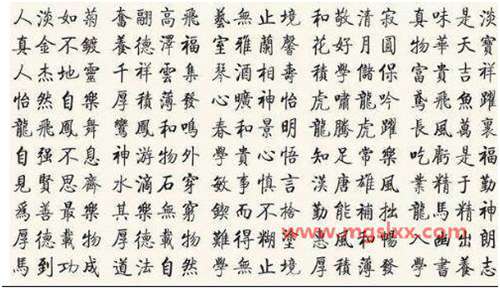 人淡如菊 奮翮高飛 藝無止境 和敬清寂 真味是淡
真金不鍍 養德澤福 室雅蘭馨 花好月圓 物華天寶
人杰地靈 千祥雲集 琴酒相壽 學儲保 富貴吉祥
怡然自樂 厚積薄發 心曠神怡 虎嘯龍吟 鳶飛魚躍
龍飛鳳舞 鸞鳳和鳴 春和景明 龍騰虎躍 長風萬裏
自强不息 神游物外 學貴心悟 知足常樂 吃虧是福
見賢思齊 水滴石穿 敏事慎言 漢唐雄風 業精于勤
爲善最樂 其樂無窮 鍥而不 勤能補拙 龍馬精神
厚德載物 厚德載物 難得糊塗 惠風和暢 幽出朗
馬到功成 道法自然 學無止境 厚積薄發 書養志
www.mgslxx.com